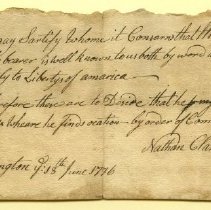 may Sartify whome it Consarns that
bearer is well known to us both by word
ly to Liberty of america
refore these are to Desire that he
wheare he finds ocation by order of Com
Nathan Cla
ngton ye 18th June 1776